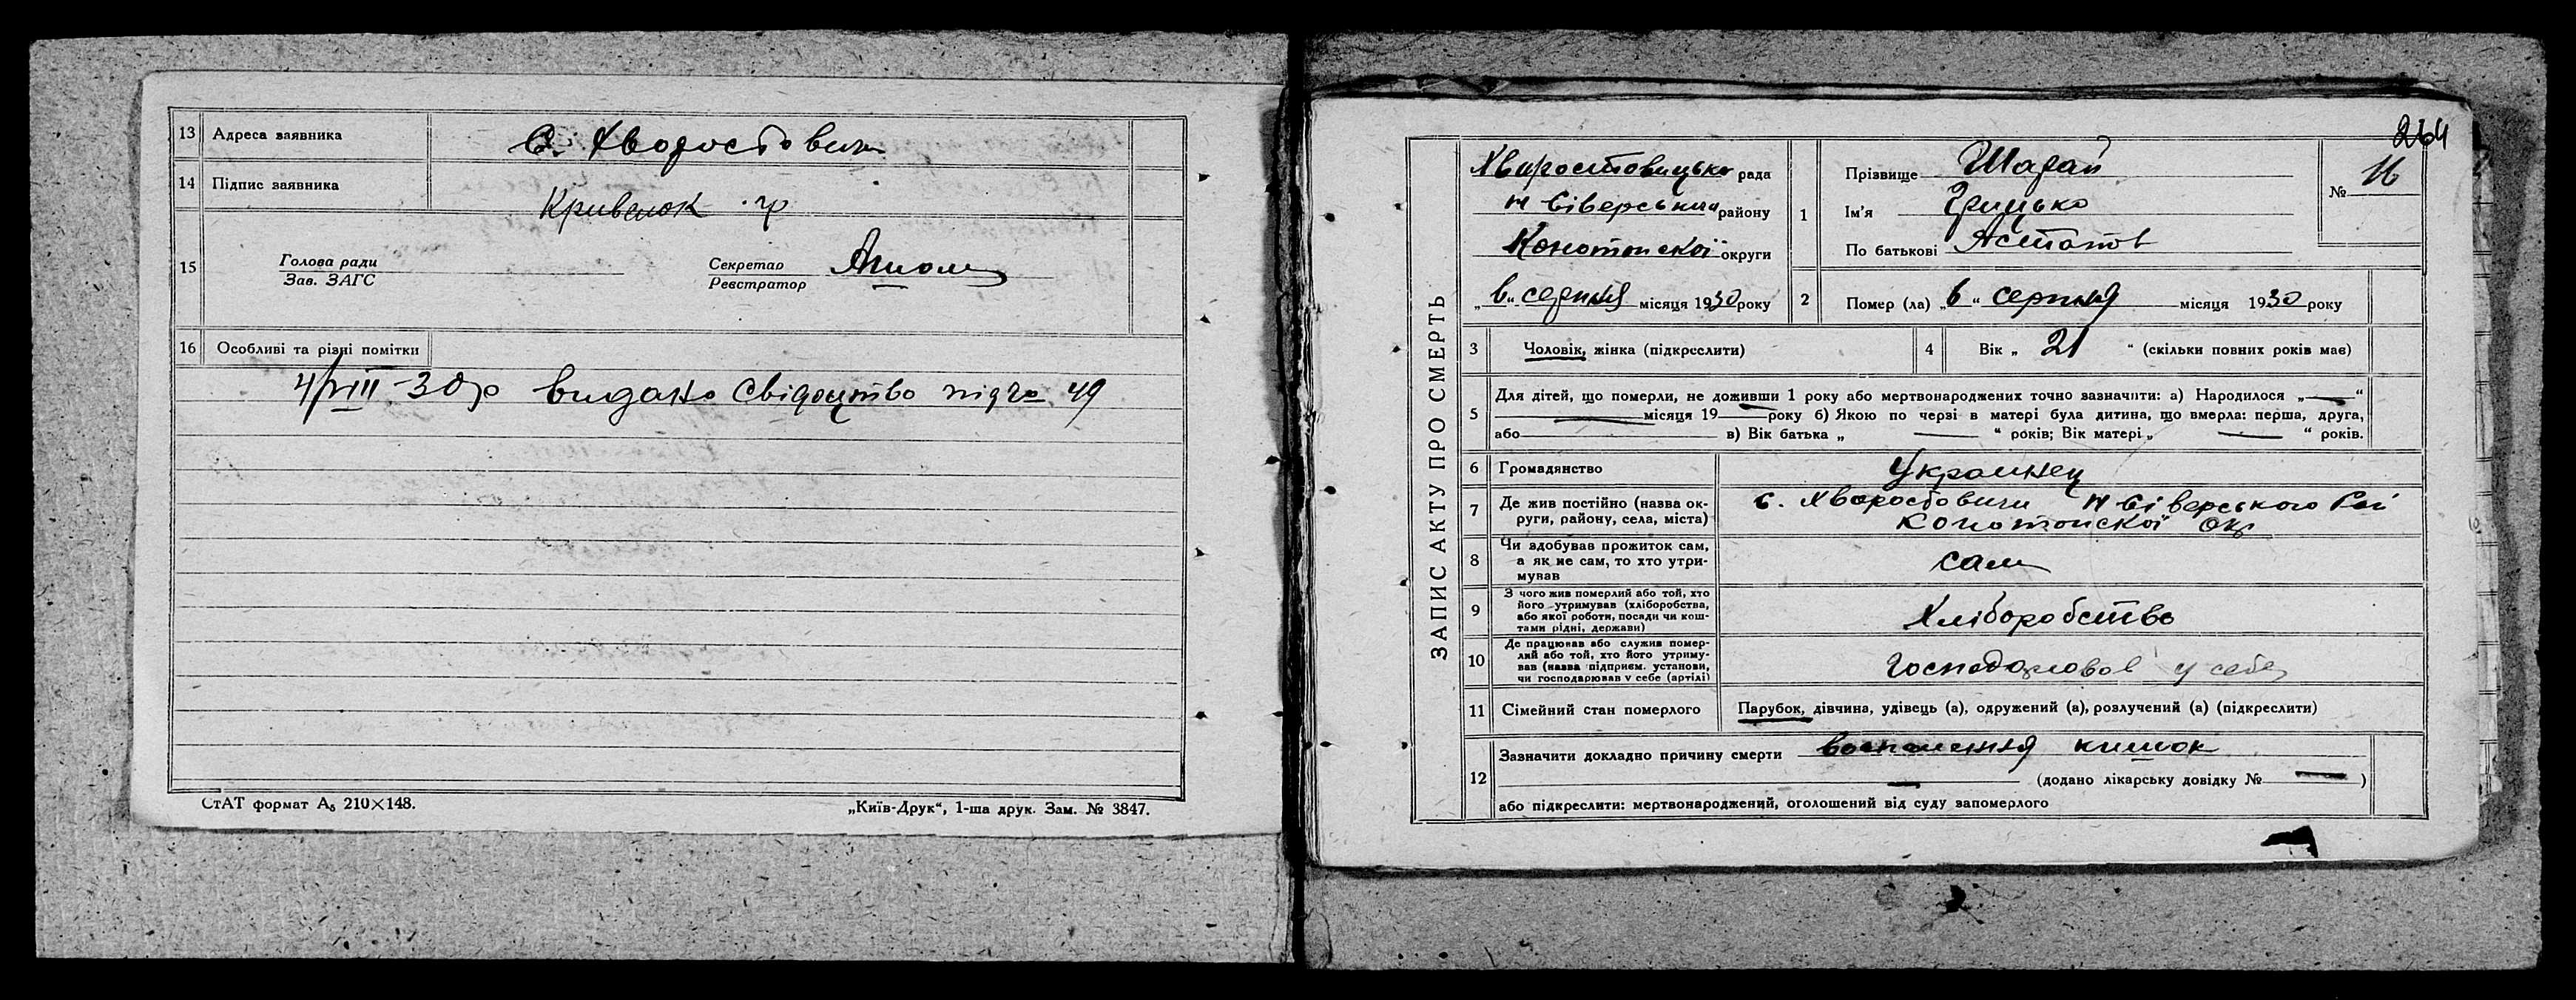 13 Адреса заявника С. Хворостовичи
14 Підпис заявника
Кривенок
15 Голова ради
Зав. ЗАГС
Секретар
Реєстратор
16 Особливі та різні помітки
4/VIII-30р видано Свідоцтво під № 49
СтАТ формат А₅ 210×148.
„Київ-Друк“, 1-ша друк. Зам. № 3847.
264
ЗАПИС АКТУ ПРО СМЕРТЬ
Хворостовицька рада
Н Сіверський району
Конотопскої округи
„6“ серпня місяця 1930 року
1 Прізвище Шарай
Ім'я Грицько
По батькові Астапов
№ 16
2 Помер (ла) „6“ серпня місяця 1930 року
3 Чоловік, жінка (підкреслити)
4 Вік „ 21 “ (скільки повних років має)
5 Для дітей, що померли, не доживши 1 року або мертвонароджених точно зазначити: а) Народилося „—“
— місяця 19— року б) Якою по черзі в матері була дитина, що вмерла: перша, друга,
або — в) Вік батька „ — “ років; Вік матері „ — “ років.
6 Громадянство Украинец
7 Де жив постійно (назва ок-
руги, району, села, міста)
с. Хворостовичи Н Сіверського Рай
Конотопскої Окр
8 Чи здобував прожиток сам,
а як не сам, то хто утри-
мував
сам
9 З чого жив померлий або той, хто
його утримував (хліборобства,
або якої роботи, посади чи кош-
тами рідні, держави)
Хліборобство
10 Де працював або служив помер-
лий або той, хто його утриму-
вав (назва підприєм. установи,
чи господарював у себе (артілі)
Господарював у себе
11 Сімейний стан померлого Парубок, дівчина, удівець (а), одружений (а), розлучений (а) (підкреслити)
12 Зазначити докладно причину смерти воспалення кишок
— (додано лікарську довідку № — )
або підкреслити: мертвонароджений, оголошений від суду запомерлого